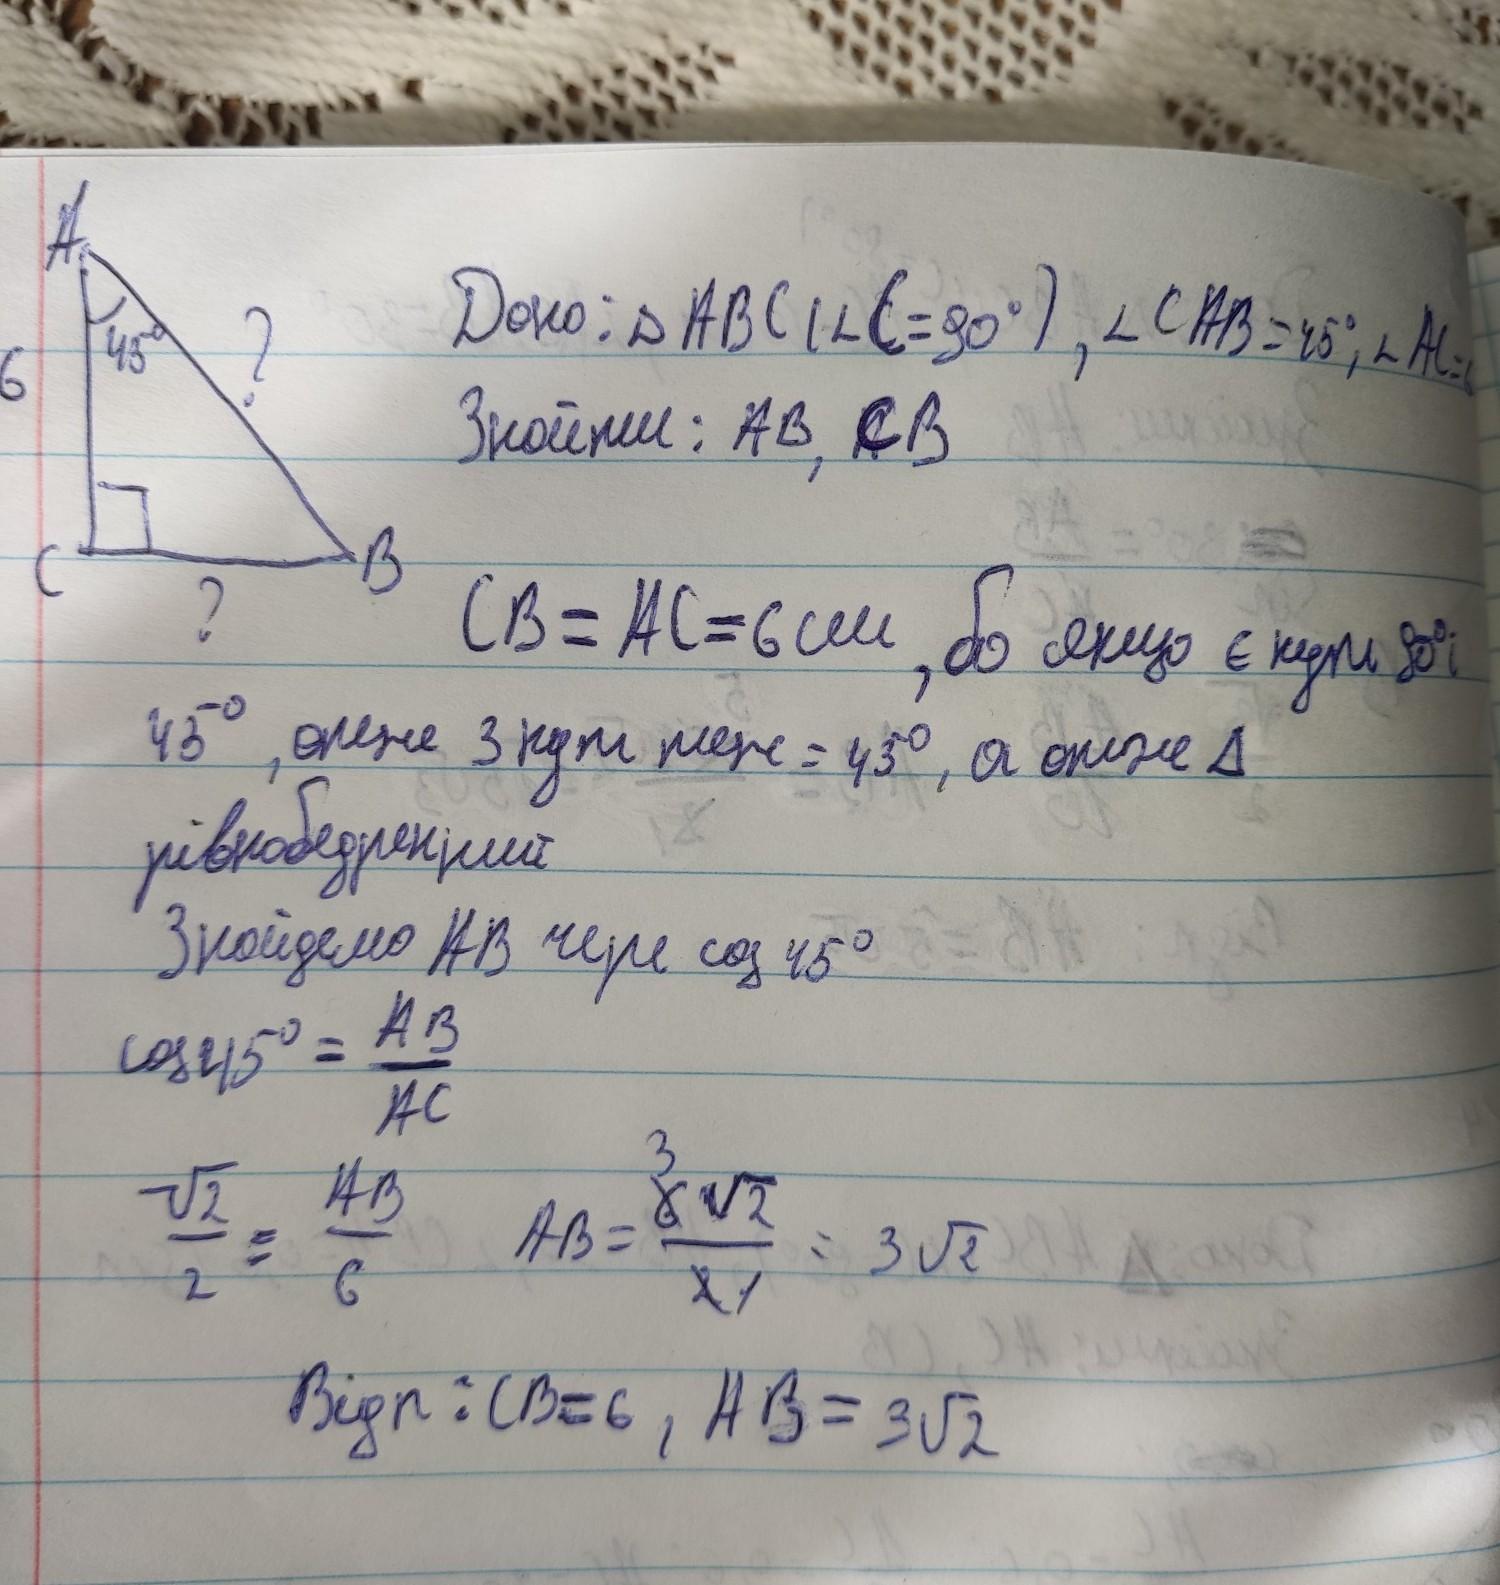 A
6
45°
?
C
B
?
Дано: △ABC (∠C=90°), ∠CAB=45°, ∠AC=6
Знайти: AB, CB
CB = AC = 6 см, бо якщо є кут 90° і
45°, отже 3 кут теж = 45°, а отже Δ
рівнобедренний
Знайдемо AB через cos 45°
cos 45° = AB / AC
√2 / 2 = AB / 6 AB = 6 3 √2 / 2 1 = 3√2
Відп: CB=6, AB=3√2